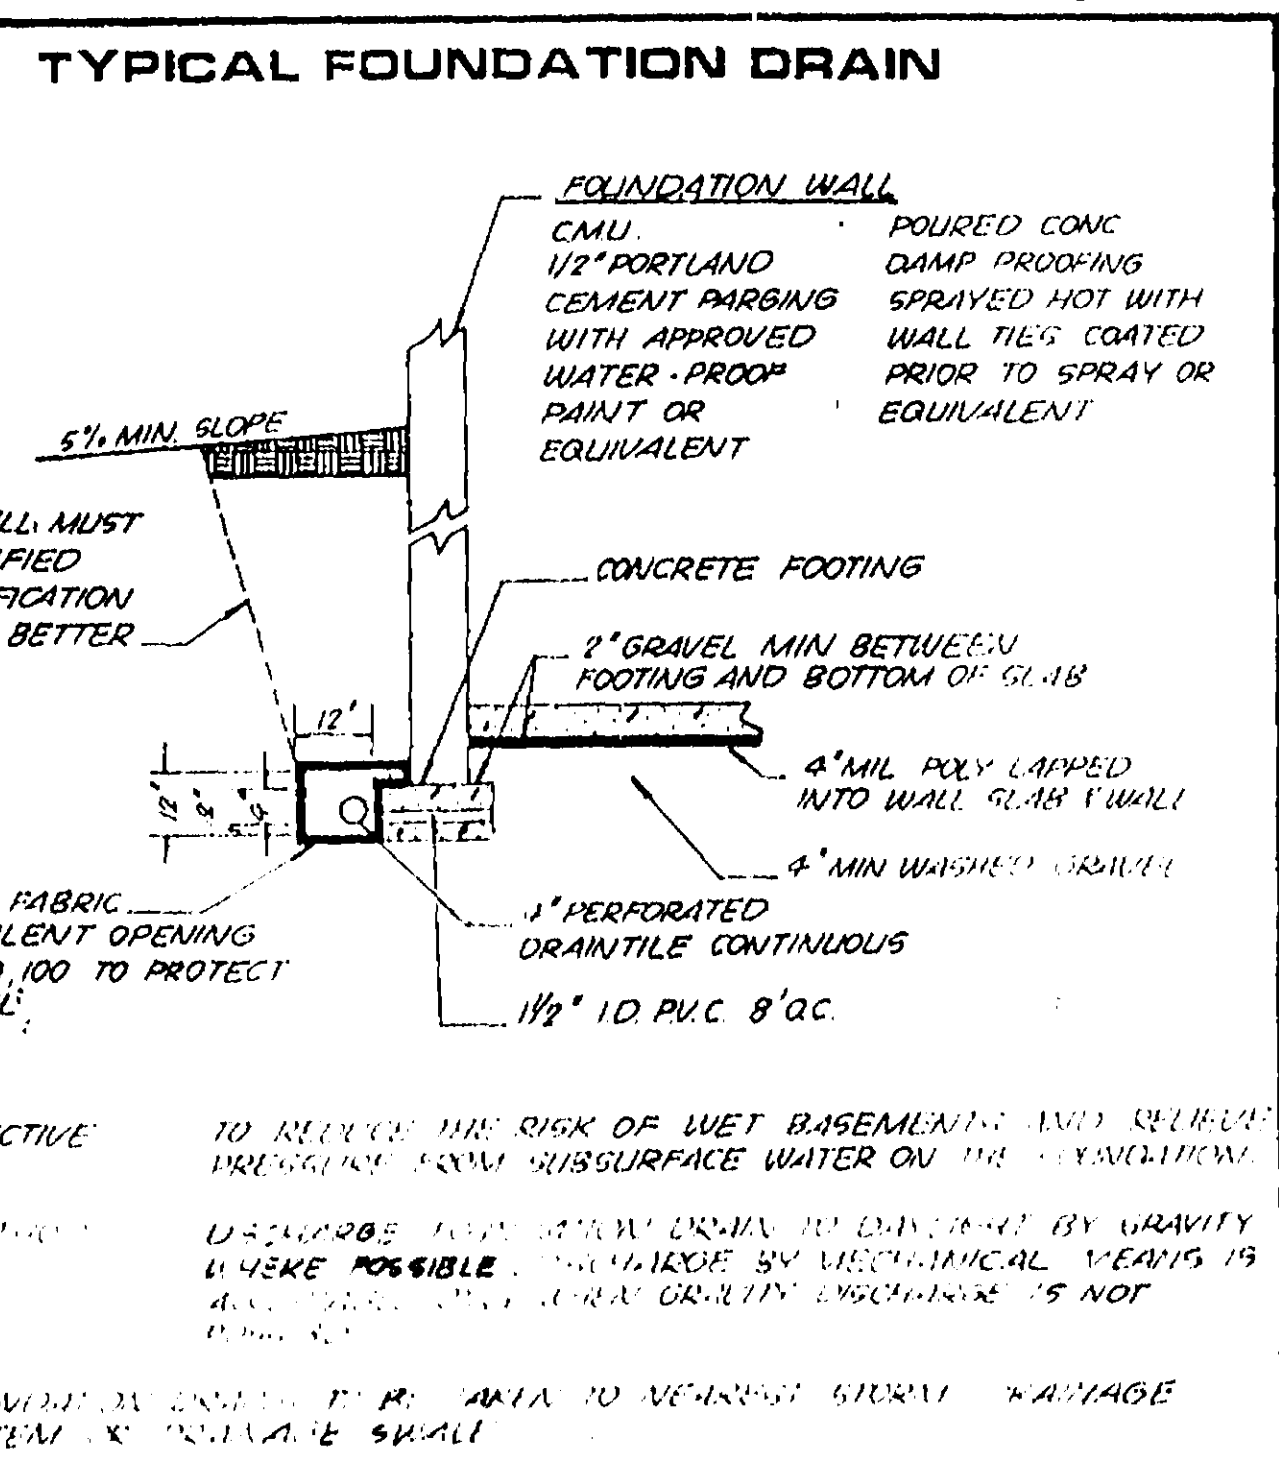 TYPICAL FOUNDATION DRAIN
FOUNDATION WALL
C.M.U.
1/2" PORTLAND
CEMENT PARGING
WITH APPROVED
WATER-PROOF
PAINT OR
EQUIVALENT
POURED CONC
DAMP PROOFING
SPRAYED HOT WITH
WALL TIES COATED
PRIOR TO SPRAY OR
EQUIVALENT
5% MIN. SLOPE
MUST
BETTER
CONCRETE FOOTING
2" GRAVEL MIN BETWEEN
FOOTING AND BOTTOM OF SLAB
12"
12"
8"
4" MIL POLY LAPPED
INTO WALL SLAB & WALL
4" MIN WASHED GRAVEL
FABRIC
OPENING
100 TO PROTECT
4" PERFORATED
DRAINTILE CONTINUOUS
1 1/2" I.D. P.V.C. 8' O.C.
TO REDUCE THE RISK OF WET BASEMENTS AND RELIEVE
PRESSURE FROM SUBSURFACE WATER ON THE FOUNDATION.
DISCHARGE DRAIN TO DAYLIGHT BY GRAVITY
WHERE POSSIBLE. DISCHARGE BY MECHANICAL MEANS IS
GRAVITY DISCHARGE IS NOT
TO NEAREST STORM DRAINAGE
DRAINAGE SWALE